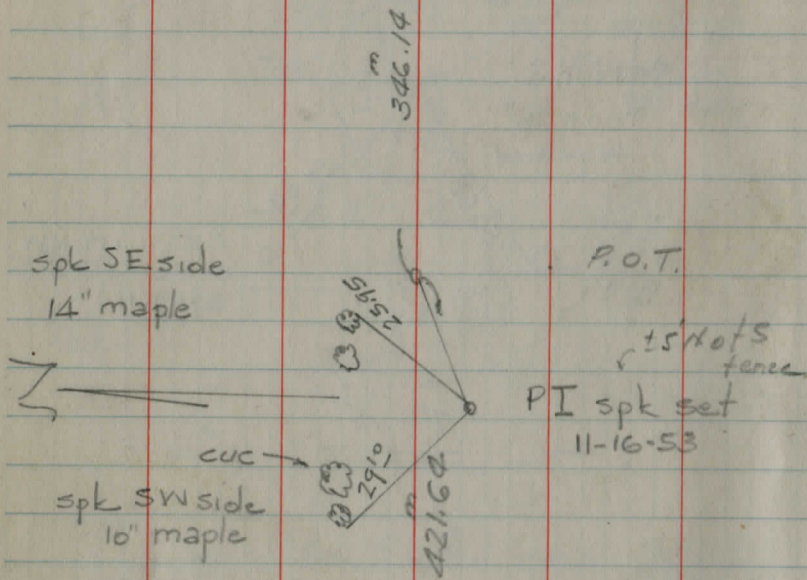 m
346.14
spk SE side
14" maple
25.95
P.O.T.
±5' N of S
fence
PI spk set
11-16-53
cuc
29.10
spk SW side
10" maple
m
421.64